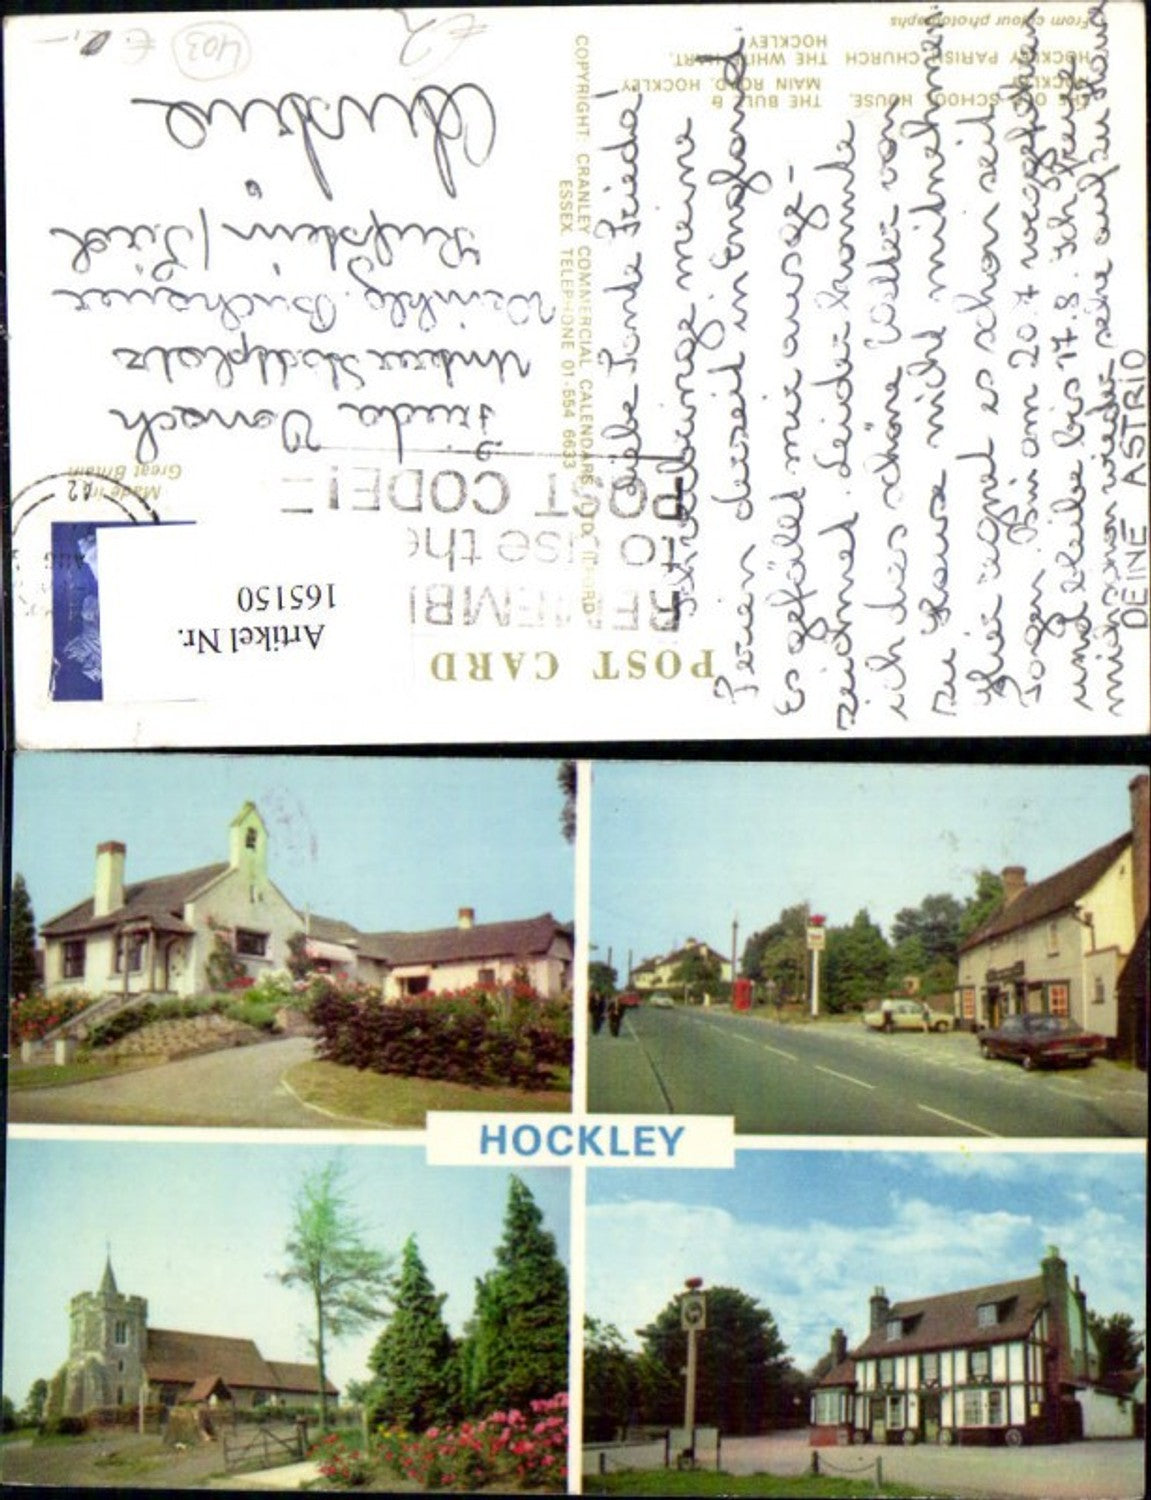 THE OLD SCHOOL HOUSE, HOCKLEY
THE BULL & MAIN ROAD, HOCKLEY
HOCKLEY PARISH CHURCH
THE WHITE HART, HOCKLEY
From colour photographs
POST CARD
COPYRIGHT: CRANLEY COMMERCIAL CALENDARS LTD, ILFORD
ESSEX TELEPHONE 01-554 6633
Liebe Tante Frieda!
verbringe meine
Ferien derzeit in England.
Es gefällt mir ausge-
zeichnet. Leider konnte
ich das schöne Wetter von
zu Hause nicht mitnehmen.
Hier regnet es schon seit
Tagen. Bin am 20.7. weggefahren
und bleibe bis 17.8. Ich freue
mich schon wieder sehr auf zu Hause
DEINE ASTRID
REMEMBER
to use the
POST CODE!
Made in
Great Britain
Frieda
Unterer Stadtplatz
Kufstein / Tirol
Austria
Artikel Nr.
165150
403
€ 2
HOCKLEY